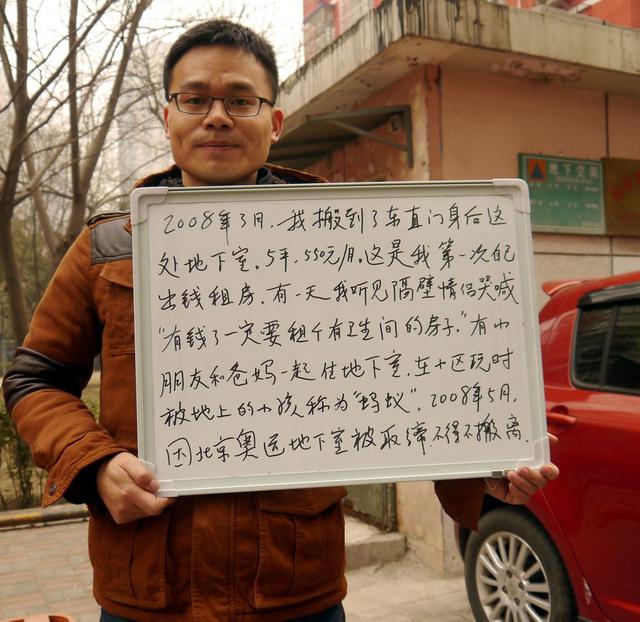 2008年3月,我搬到了东直门身后这
处地下室。5平,550元/月。这是我第一次自己
出钱租房。有一天我听见隔壁情侣哭喊
“有钱了一定要租个有卫生间的房子。”有小
朋友和爸妈一起住地下室,在小区玩时
被地上的小孩人称为“蚂蚁”。2008年5月,
因北京奥运地下室被取缔不得不搬离.
地下空间